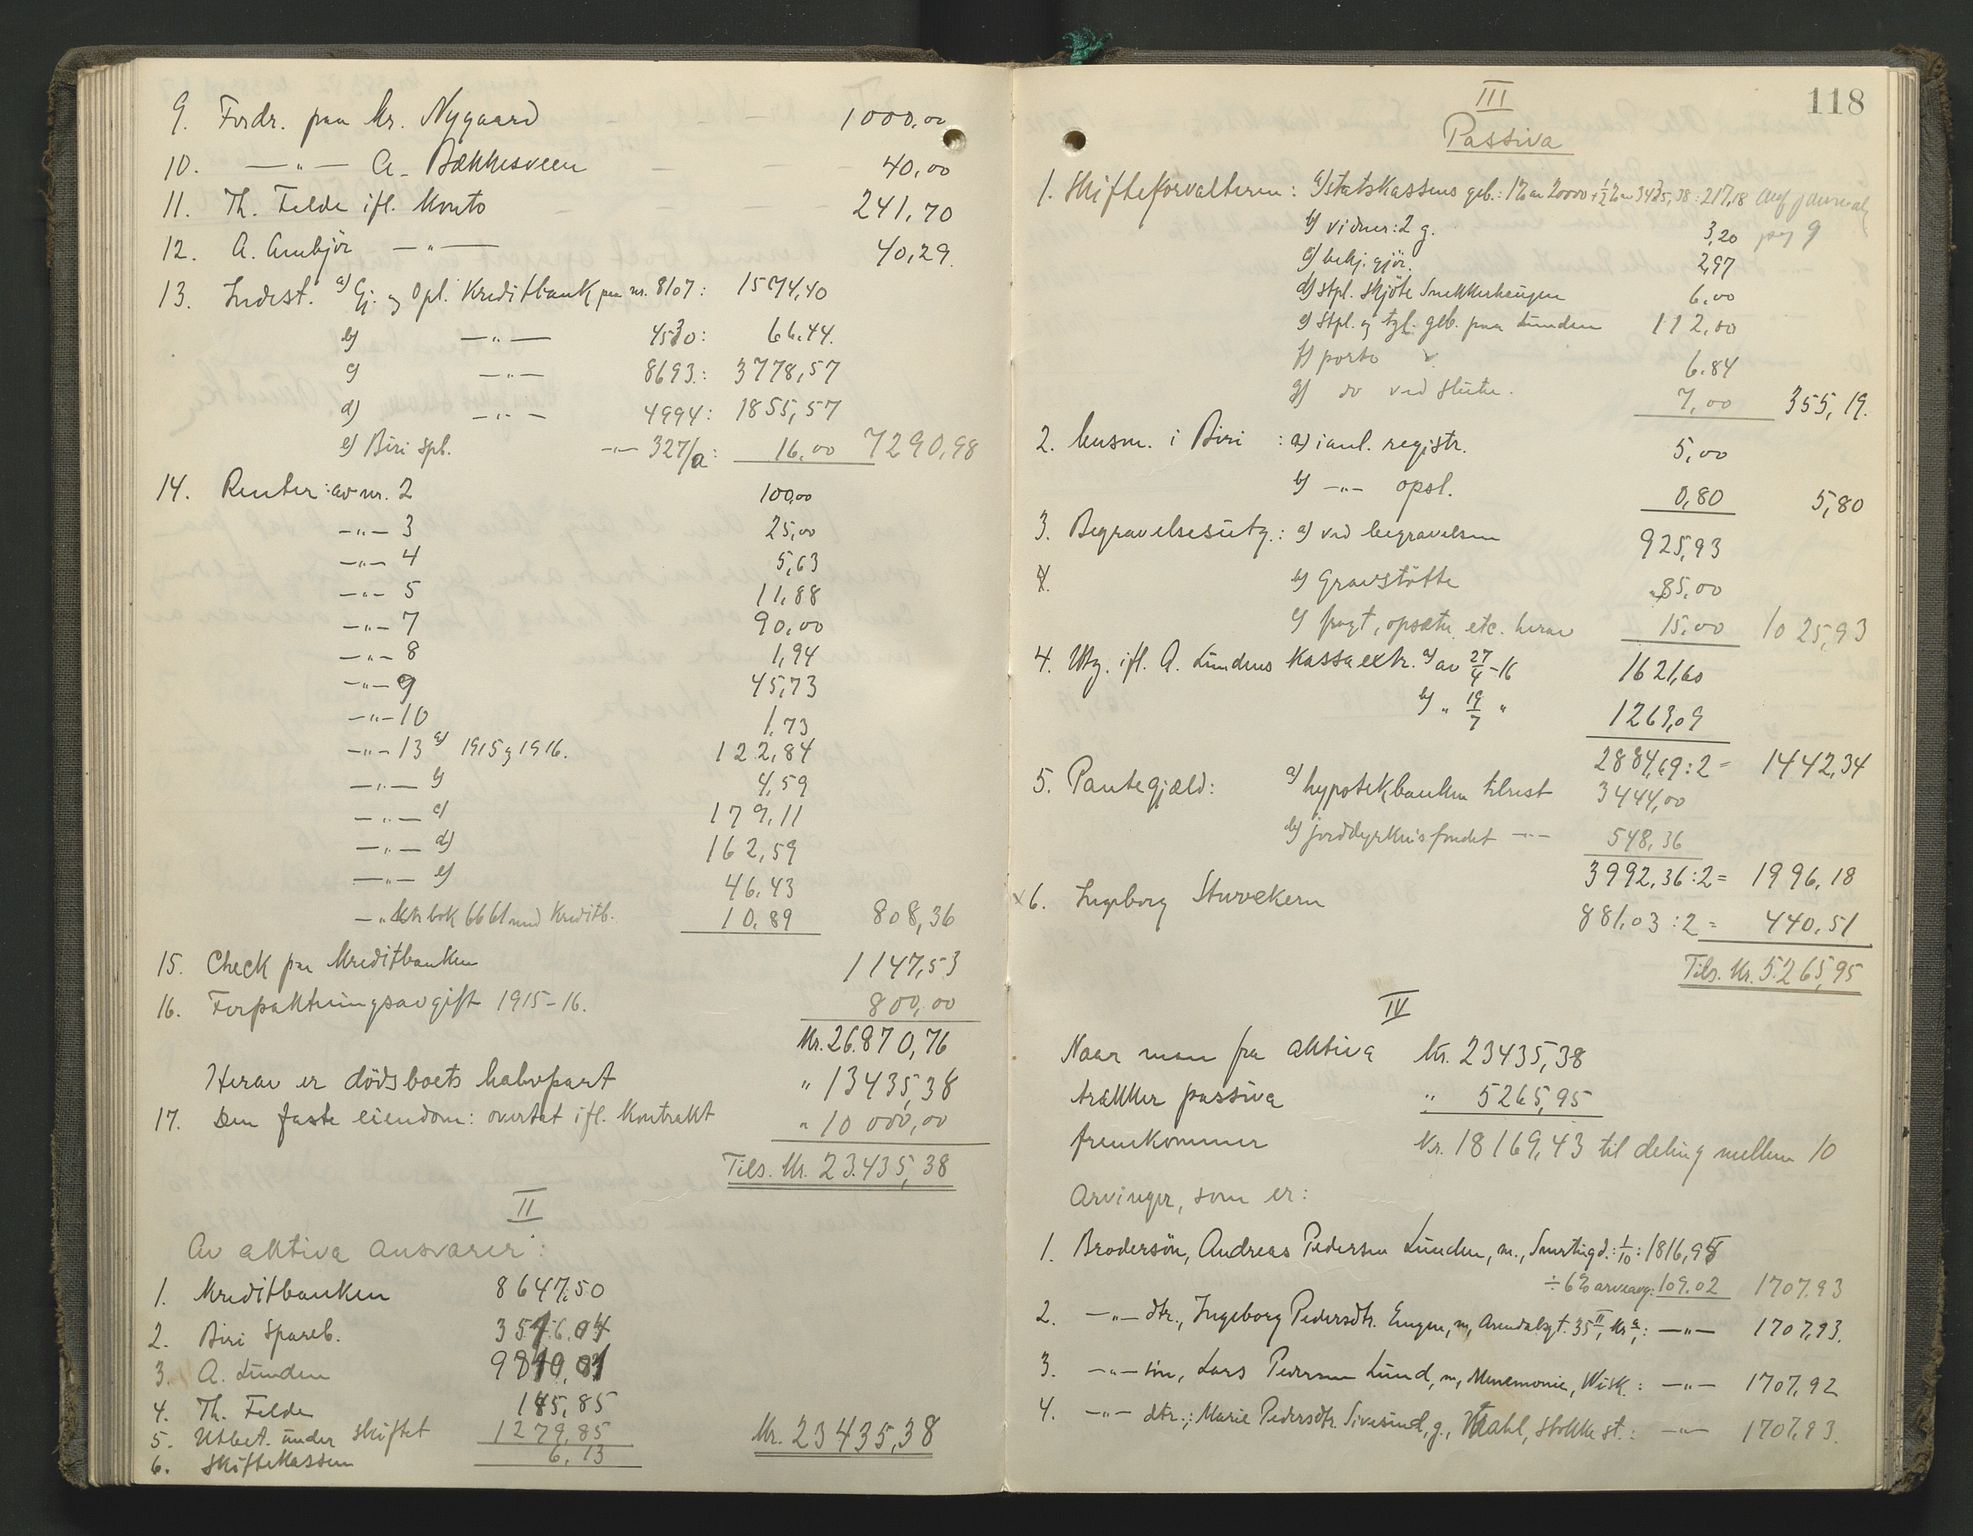 9. Fordr. paa Kr. Nygaard 1000,00
10. —"— A. Bækkesveen 40,00
11. Th. Felde ifl. Konto 241,70
12. A. Ambjör —"— 40,29.
13. Indest. a) Gj. og Opl. Kreditbank paa nr. 8107: 1574,40
b) —"— 4530: 66.44.
c) —"— 8693: 3778,57
d) —"— 4994: 1855,57
e) Biri Spb. —"— 327/a: 16,00 7290,98
14. Renter: av nr. 2 100,00
—"— 3 25,00
—"— 4 5,63
—"— 5 11,88
—"— 7 90,00
—"— 8 1,94
—"— 9 45,73
—"— 10 1,73
—"— 13 a) 1915 og 1916. 122,84
—"— b) 4,59
—"— c) 179,11
—"— d) 162,59
—"— e) 46.43
—"— bok 6661 med Kreditb. 10,89 808,36
15. Check paa Kreditbanken 1147,53
16. Forpaktningsavgift 1915-16. 800,00
Kr. 26.870,76
Herav er dödsboets halvpart " 13435,38
17. Den faste eiendom: overtat ifl. Kontrakt " 10 000,00
Tils. Kr. 23.435,38
II
Av aktiva ansvarer:
1. Kreditbanken 8647,50
2. Biri Spareb.
3. A. Lunden
4. Th. Felde 185,85
5. Utbet. under skiftet 1279,85
6. Skiftekassen 6,13 Kr. 23435,38
118
III
Passiva
1. Skifteforvalteren: a) Statskassens geb.: 1% av 20000 + ½% av 3435,38: 217,18
b) vidner: 2 g. 3,20 pag 9
c) bekj.gjör. 2,97
d) stpl. skjöte Snekkerhaugen 6,00
e) stpl. og tgl. geb. paa Lunden 112,00
f) porto 6.84
g) do ved slutn. 7,00 355,19.
2. Lensm. i Biri: a) i anl. registr. 5,00
b) —"— opsl. 0,80 5,80
3. Begravelsesutg.: a) ved begravelsen 925,93
4. b) Gravstötte 85,00
c) fragt, opsætn. etc. herav 15,00 1025,93
4. Utg. ifl. A. Lundens Kassaextr. a) av 27/4-16 1621,60
b) " 19/7 " 1263,09
2884,69:2 = 1442,34
5. Pantegjæld: a) hypotekbanken tilrest 3444,00
b) jorddyrkningsfondet —"— 548,36
3992,36:2 = 1996,18
x 6. Ingeborg Sturvekern 881,03:2 = 440,51
Tils. Kr. 5.265,95
IV
Naar man fra aktiva Kr. 23435,38
trækker passiva " 5265,95
fremkommer Kr. 18169,43 til deling mellem 10
Arvinger, som er:
1. Brodersön, Andreas Pedersen Lunden, m., Snertingd.: 1/10: 1816,95
÷ 6% arveavg: 109.02 1707,93
2. —"— dtr., Ingeborg Pedersdtr. Engen, m, Arendalsgt. 35 II, Kr.a,: —"— 1707,93.
3. —"— sön, Lars Pedersen Lund, m, Menomonie, Wisk.: —"— 1707,92
4. —"— dtr.; Marie Pedersdtr. Sivesind, g., Kahl, Stokke st.: —"— 1707,93.